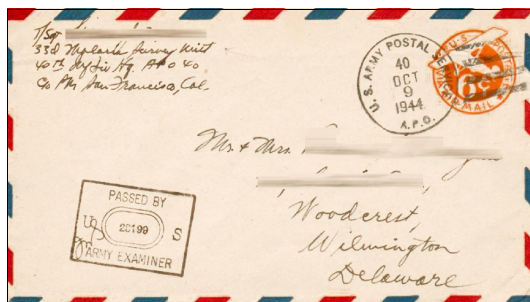 T/Sgt
33d Malaria Survey Unit
40th Inf Div Hq. APO 40
C/o PM San Francisco, Cal.
U.S. ARMY POSTAL
40
OCT
9
1944
A.P.O.
U.S.
6¢
AIR MAIL
Mr & Mrs.
Woodcrest,
Wilmington
Delaware
PASSED BY
US 20199 S
ARMY EXAMINER